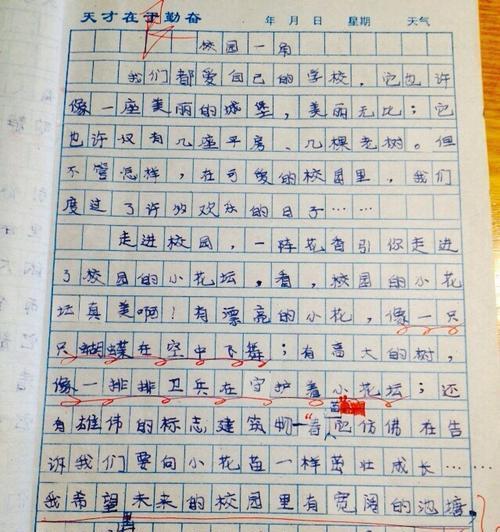 天才在于勤奋 年 月 日 星期 天气
校园一角
我们都爱自己的学校，它也许
像一座美丽的城堡，美丽无比；它
也许仅有几座平房、几棵老树。但
不管怎样，在可爱的校园里，我们
度过了许多欢乐的日子……
走进校园，一阵花香引你走进
了校园的小花坛，看，校园的小花
坛真美啊！有漂亮的小花，像一只
只蝴蝶在空中飞舞；有高大的树，
像一排排卫兵在守护着小花坛；还
有雄伟的标志建筑物一“苗”仿佛在告
诉我们要向小花苗一样茁壮成长…
我希望未来的校园里有宽阔的池塘，